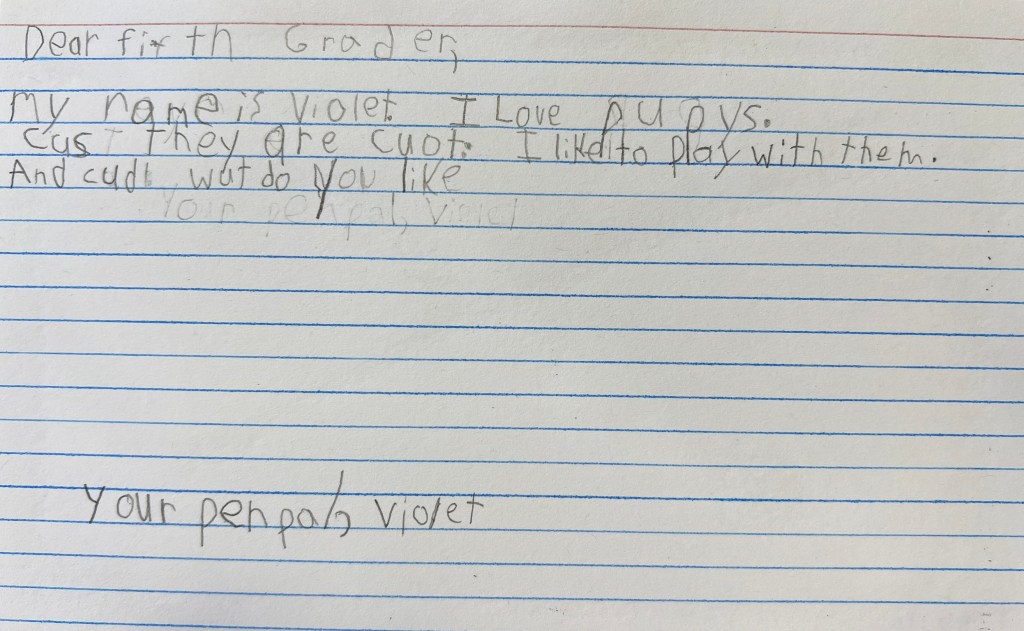 Dear fixth Grader,
My name is Violet. I Love pupys.
cus they are cuot. I likd to play with them.
And cudl wut do you like
Your penpal, Violet
Your penpal, violet